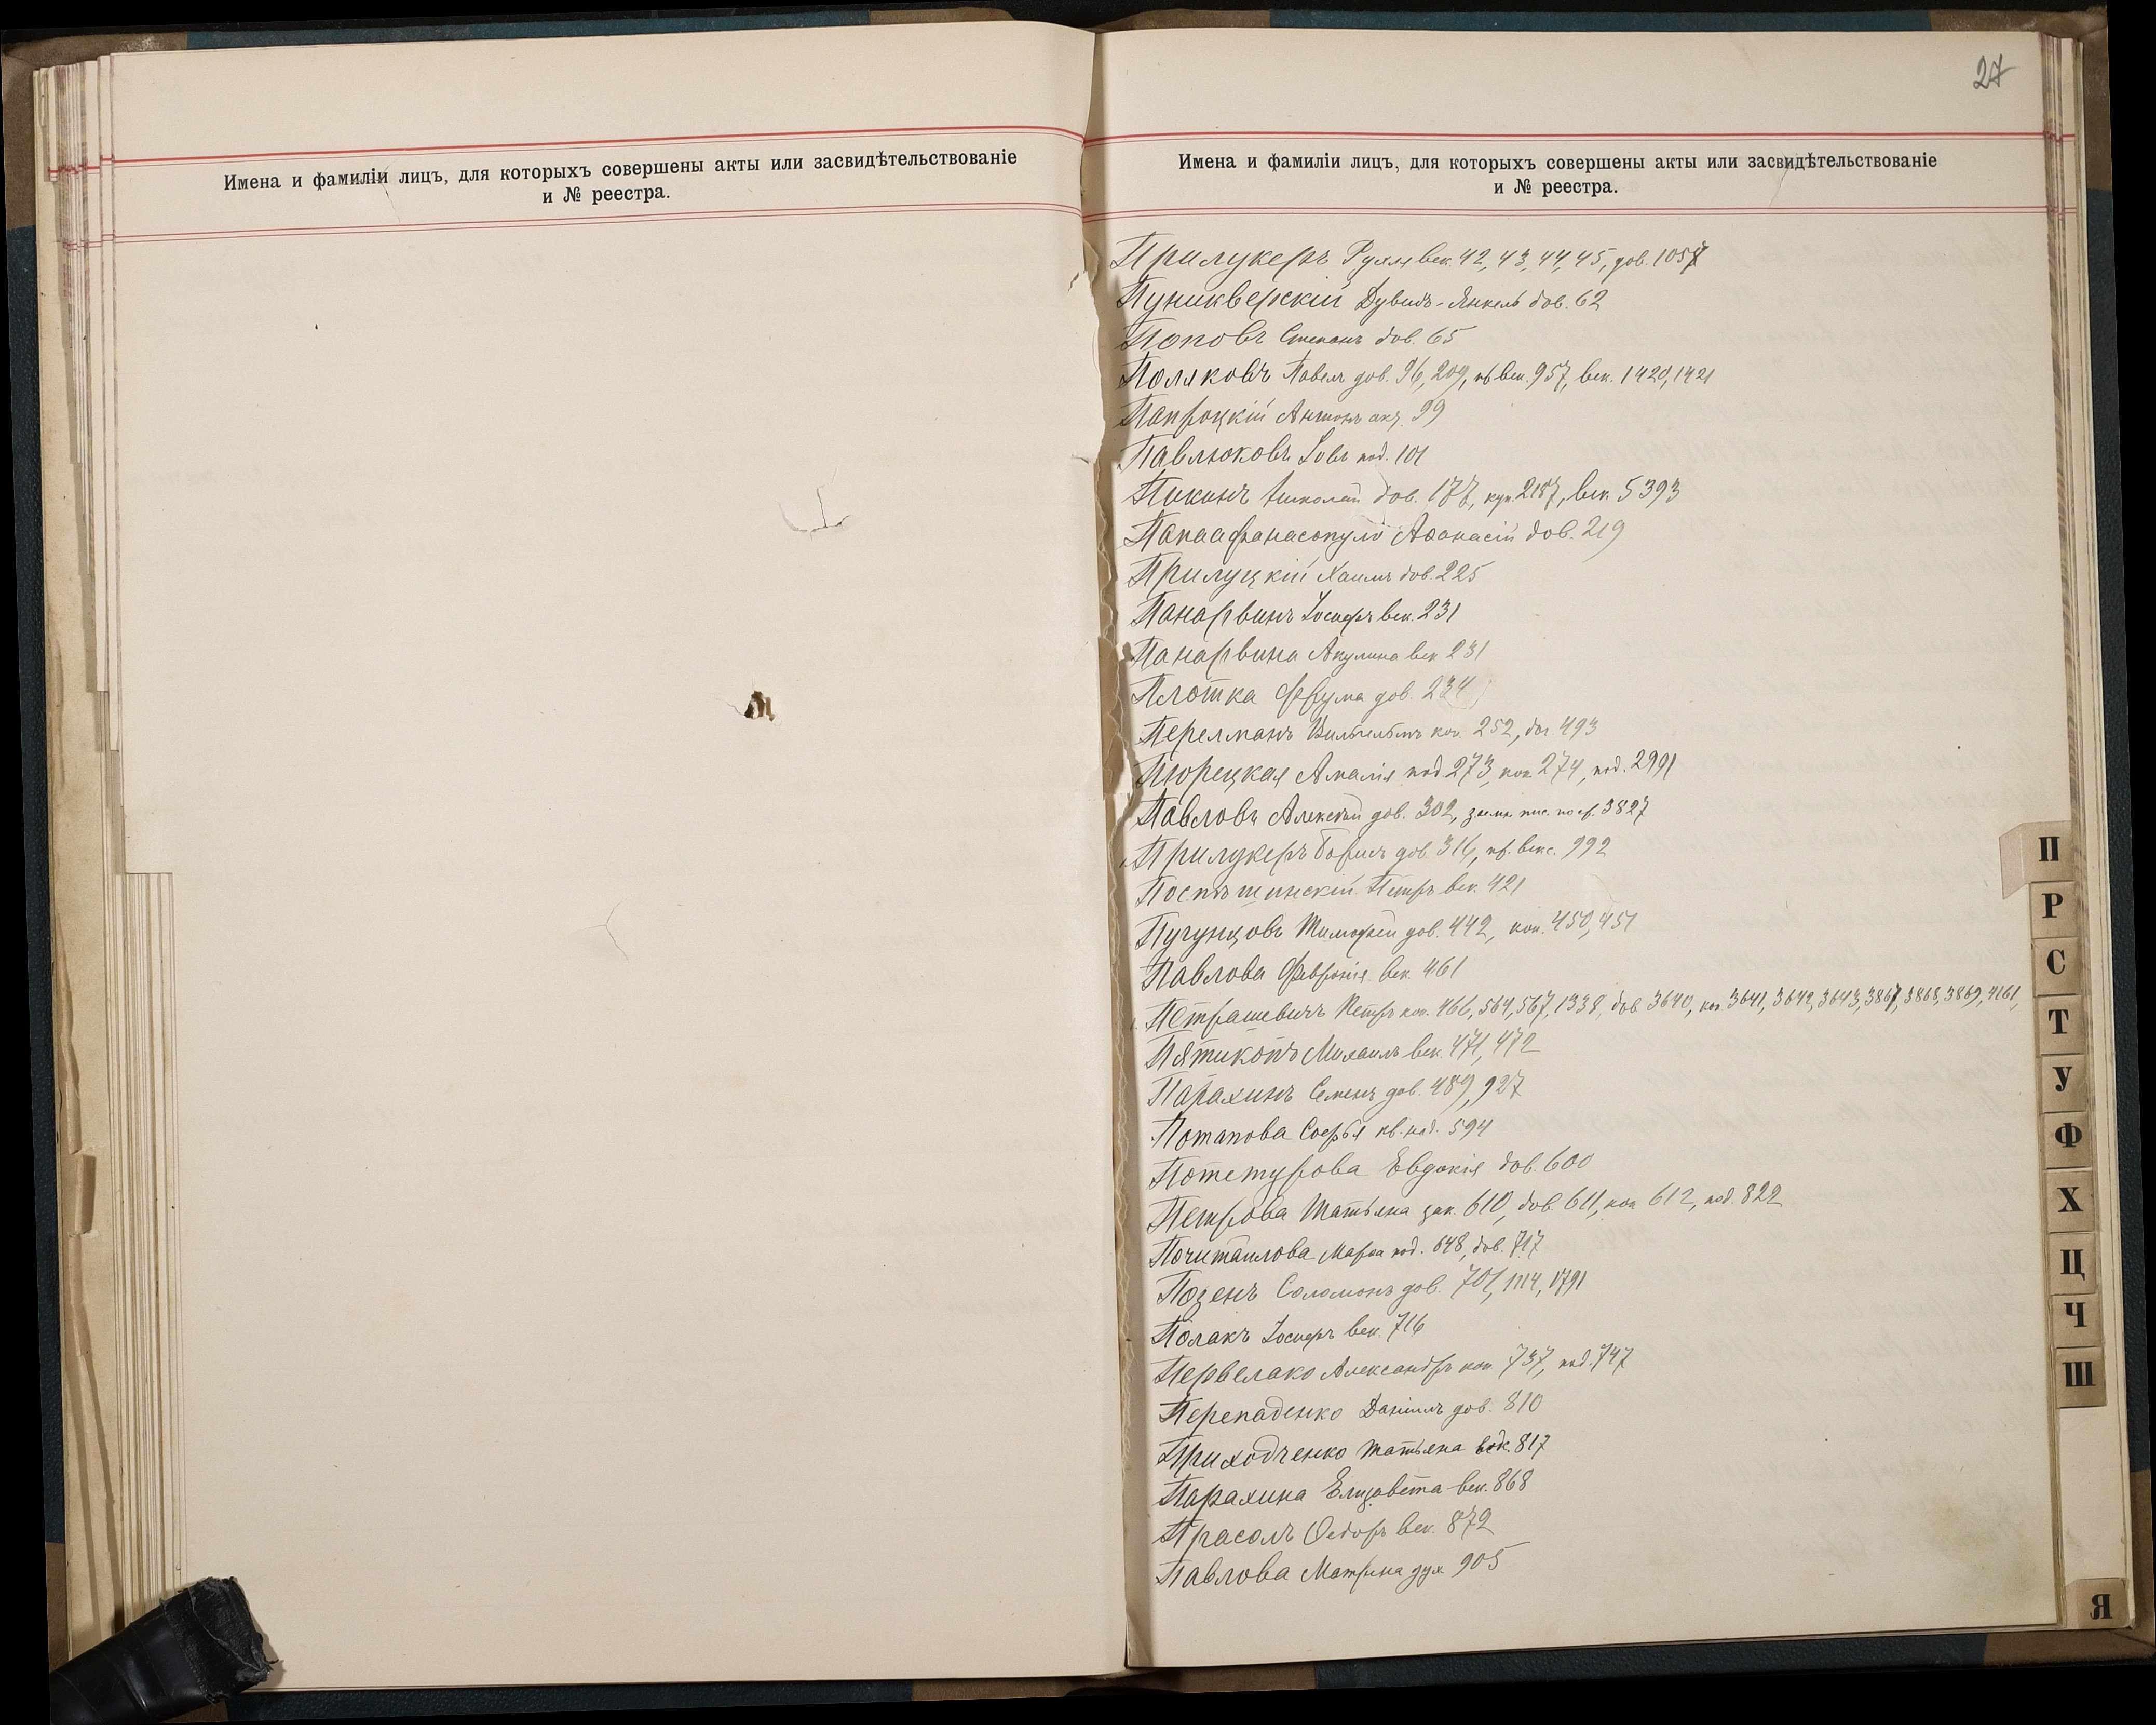 Имена и фамиліи лицъ, для которыхъ совершены акты или засвидѣтельствованіе
и № реестра.
27
Имена и фамиліи лицъ, для которыхъ совершены акты или засвидѣтельствованіе
и № реестра.
Прилукеръ Рухля век. 42, 43, 44, 45, дов. 1057
Дувидъ-Янкель дов. 62
Поповъ Степанъ дов. 65
Поляковъ Павелъ дов. 96, 209, век. 957, век. 1420, 1421
Папроцкій Антонъ 99
Павлюковъ Іовъ под. 101
Николай дов. 177, 2187, век. 5393
Папаафанасопуло Аѳанасій дов. 219
Прилуцкій Хаимъ дов. 225
Панарвинъ Іосифъ век. 231
Панарвина Акулина век 231
Плотка Фрума дов. 234
Перелманъ Вильгельмъ коп. 252, дог. 493
Пюрецкая Амалія под. 273, коп 274, под. 2991
Павловъ Алексѣй дов. 302, 3827
Прилукеръ Борисъ дов. 316, пр. векс. 992
Петръ век. 421
Пугунцовъ Тимофей дов. 442, коп. 450, 451
Павлова Февронія век. 461
Петрашевичъ Петръ коп. 466, 564, 567, 1338, дов 3640, коп 3641, 3642, 3643, 3867, 3868, 3869, 4161,
Пятикопъ Михаилъ век. 471, 472
Парахинъ Семенъ дов. 489, 927
Потапова Софья под. 594
Потетурова Евдокія дов. 600
Петрова Татьяна 610, дов. 611, коп 612, под. 822
Почитаилова Марѳа под. 648, дов. 717
Позенъ Соломонъ дов. 701, 1114, 1791
Полакъ Іосифъ век. 716
Первелако Александръ коп. 737, под. 747
Перепаденко Даніилъ дов. 810
Приходченко Татьяна 817
Парахина Елизавета век. 868
Прасолъ Ѳедоръ век. 872
Павлова Матрена дух 905
П
Р
С
Т
У
Ф
Х
Ц
Ч
Ш
Я